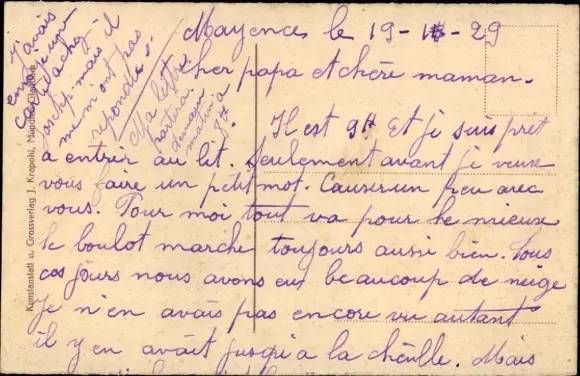 Mayence le 19-1-29
cher papa et chère maman.
Il est 9H Et je suis prêt
a entrer au lit. Seulement avant je veux
vous faire un petit mot. Causer un peu avec
vous. Pour moi tout va pour le mieux
le boulot marche toujours aussi bien. Tous
ces jours nous avons eu beaucoup de neige
Je n'en avais pas encore vu autant
il y en avait jusqu'a la chéville. Mais
J'avais
envoyé une
carte a chez
joseph mais il
me m'ont pas
répondu.
Ma lettre
partira
demain
matin à
8H.
Kunstanstalt u. Grossverlag J. Krepohl,